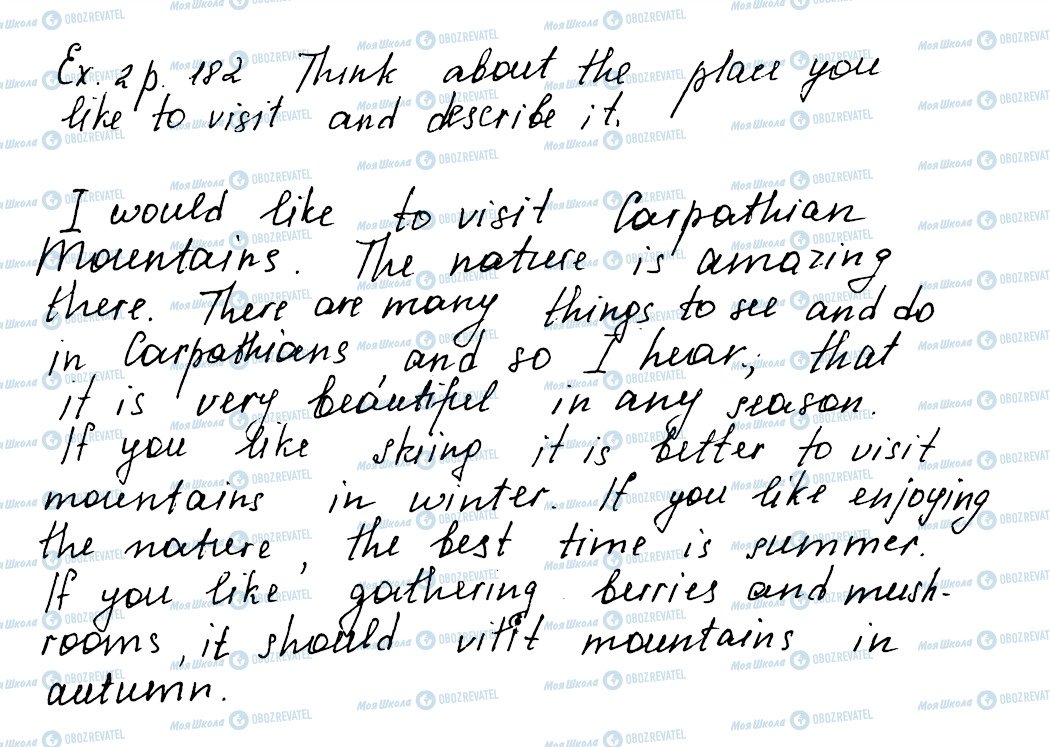 Ex. 2 p. 182 Think about the place you
like to visit and describe it.
I would like to visit Carpathian
Mountains. The nature is amazing
there. There are many things to see and do
in Carpathians, and so I hear, that
it is very beautiful in any season.
If you like skiing it is better to visit
mountains in winter. If you like enjoying
the nature, the best time is summer.
If you like gathering berries and mush-
rooms, it should visit mountains in
autumn.